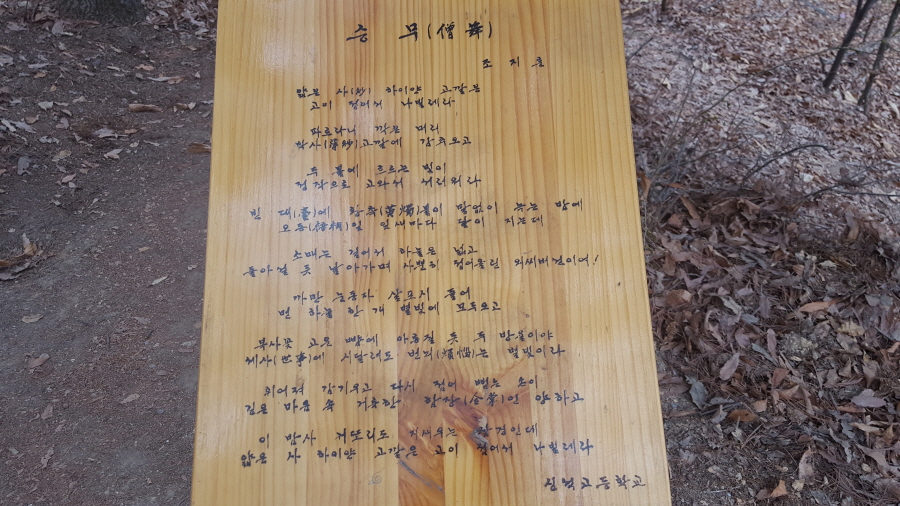 승 무(僧舞)
조 지 훈
얇은 사(紗) 하이얀 고깔은
고이 접어서 나빌레라
파르라니 깍은 머리
박사(薄紗)고깔에 감추오고
두 볼에 흐르는 빛이
정작으로 고와서 서러워라
빈 대(臺)에 황촉(黃燭)불이 말없이 녹는 밤에
오동(梧桐)잎 잎새마다 달이 지는데
소매는 길어서 하늘은 넓고
돌아설 듯 날아가며 사뿐히 접어올린 외씨버선이여!
까만 눈동자 살포시 들어
먼 하늘 한 개 별빛에 모두오고
복사꽃 고운 뺨에 아롱질 듯 두 방울이야
세사(世事)에 시달려도 번뇌(煩惱)는 별빛이라
휘어져 감기우고 다시 접어 뻗는 손이
깊은 마음 속 거룩한 합장(合掌)인 양하고
이 밤사 귀또리도 지새우는 삼경인데
얇은 사 하이얀 고깔은 고이 접어서 나빌레라
고등학교